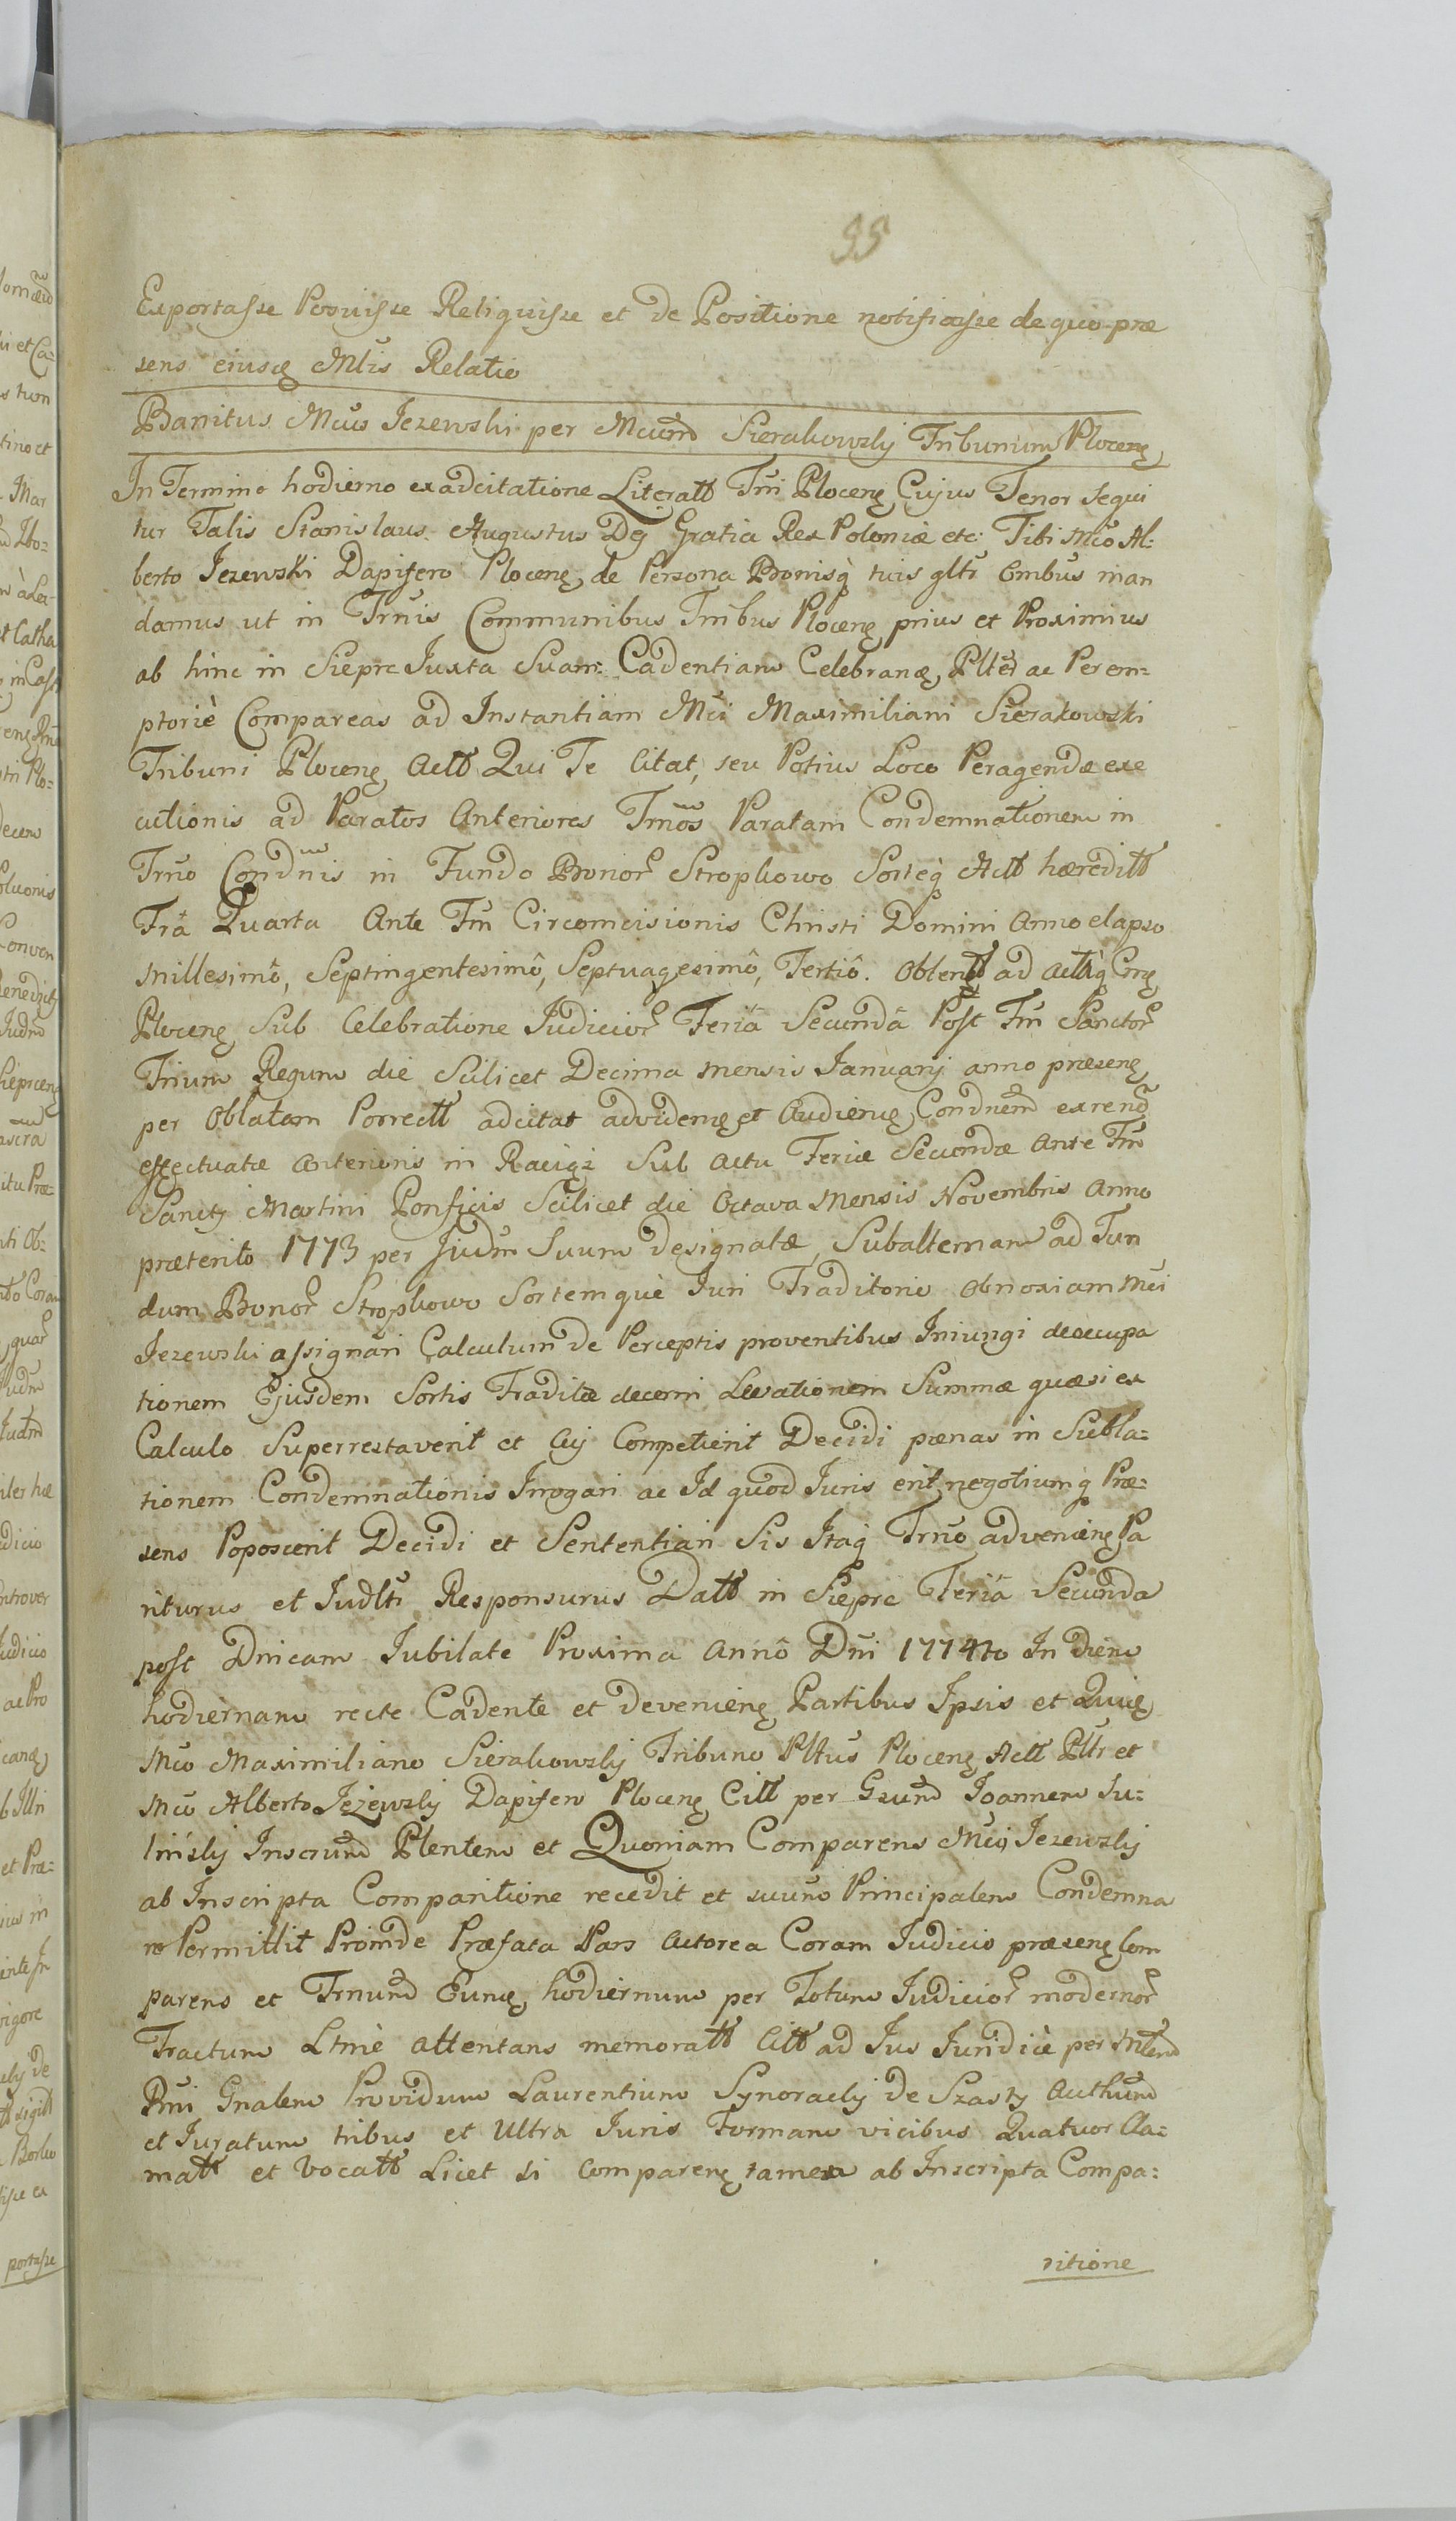 55
Exportasse Posuisse Reliquisse et de Positione notificasse de quo præ
sens eiusq Mtis Relatio
Banitus Mcus Jezewski per Mcum Sierakowskj Tribunum Plocenę
In Termino hodierno ex adcitatione Literatt Tmi Plocenę Cujus Tenor sequi
tur Talis Stanislaus Augustus Dej Gratia Rex Poloniæ etc: Tibi Mco Al:
berto Jezewski Dapifero Plocenę de Persona Bonisq tuis gltr Ombus man
damus ut in Trnis Communibus Tmibus Plocenę prius et Proximius
ab hinc in Sieprc Juxta Suam Cadentiam Celebranę Pltr ac Perem=
ptoriè Compareas ad Instantiam Mci Maximiliani Sierakowski
Tribuni Plocenę Actt Qui Te Citat, seu Potius Loco Peragendæ exe
cutionis ad Paratos Anteriores Trnos Paratam Condemnationem in
Trno Condnis in Fundo Bonor Stropkowo Sorteq Actt hæreditt
Fra Quarta Ante Fm Circomcisionis Christi Domini Anno elapso
Millesimô, Septingentesimô, Septuagesimô, Tertiô. Obtentt ad actaq
Plocenę Sub Celebratione Judicior Feriâ Secundâ Post Fm Sanctor
Trium Regum die Scilicet Decima mensis Januarij anno præsenę
per Oblatam Porrectt adcitat advidenę et Audienę Condnem
effectuatæ anterioris in Raciąż Sub actu Feriæ Secundæ Ante Fm
Sanctj Martini Ponficis Scilicet die Octava Mensis Novembris Anno
præterito 1773 per Judm Suum designatæ, Subalternam ad Fun
dum Bonor Stropkowo Sortemquè Juri Traditorio obnoxiam Mci
Jezewski assignari Calculum de Perceptis proventibus Iniungi deoccupa
tionem Ejusdem Sortis Traditæ decerni Levationem Summæ quæsi ex
Calculo Superrestaverit et Cuj Competierit Decidi pænas in Subla=
tionem Condemnationis Irrogari ac Id quod Juris erit negotiumq Præ=
sens Poposcerit Decidi et Sententiari Sis Itaq Trno advenienę Pa
riturus et Judltr Responsurus Datt in Sieprc Feriâ Secunda
post Dnicam Jubilate Proxima Annô Dni 1774to In diem
hodiernam recte Cadente et devenienę Partibus Ipsis et Quię
Mco Maximiliano Sierakowskj Tribuno Pltus Plocenę Actt Pltr et
Mco Alberto Jeżewskj Dapifero Plocenę Citt per Gsum Joannem Su=
lińskj Inscrum Plentem et Quoniam Comparens Mcij Jezewskj
ab Inscripta Comparitione recedit et suum Principalem Condemna
re Permittit Proinde Præfata Pars Actorea Coram Judicio præsenę Com
parens et Trnum Eunę hodiernum per Totum Judicior modernor
Tractum Ltmè attentans memoratt Citt ad Jus Juridicè per Mtem
Rni Gnalem Providum Laurentium Synorackj de Szastj Authum
et Juratum tribus et Ultra Juris Formam vicibus Quatuor Cla=
matt et Vocatt Licet si Comparenę tamen ab Inscripta Compa:
ritione